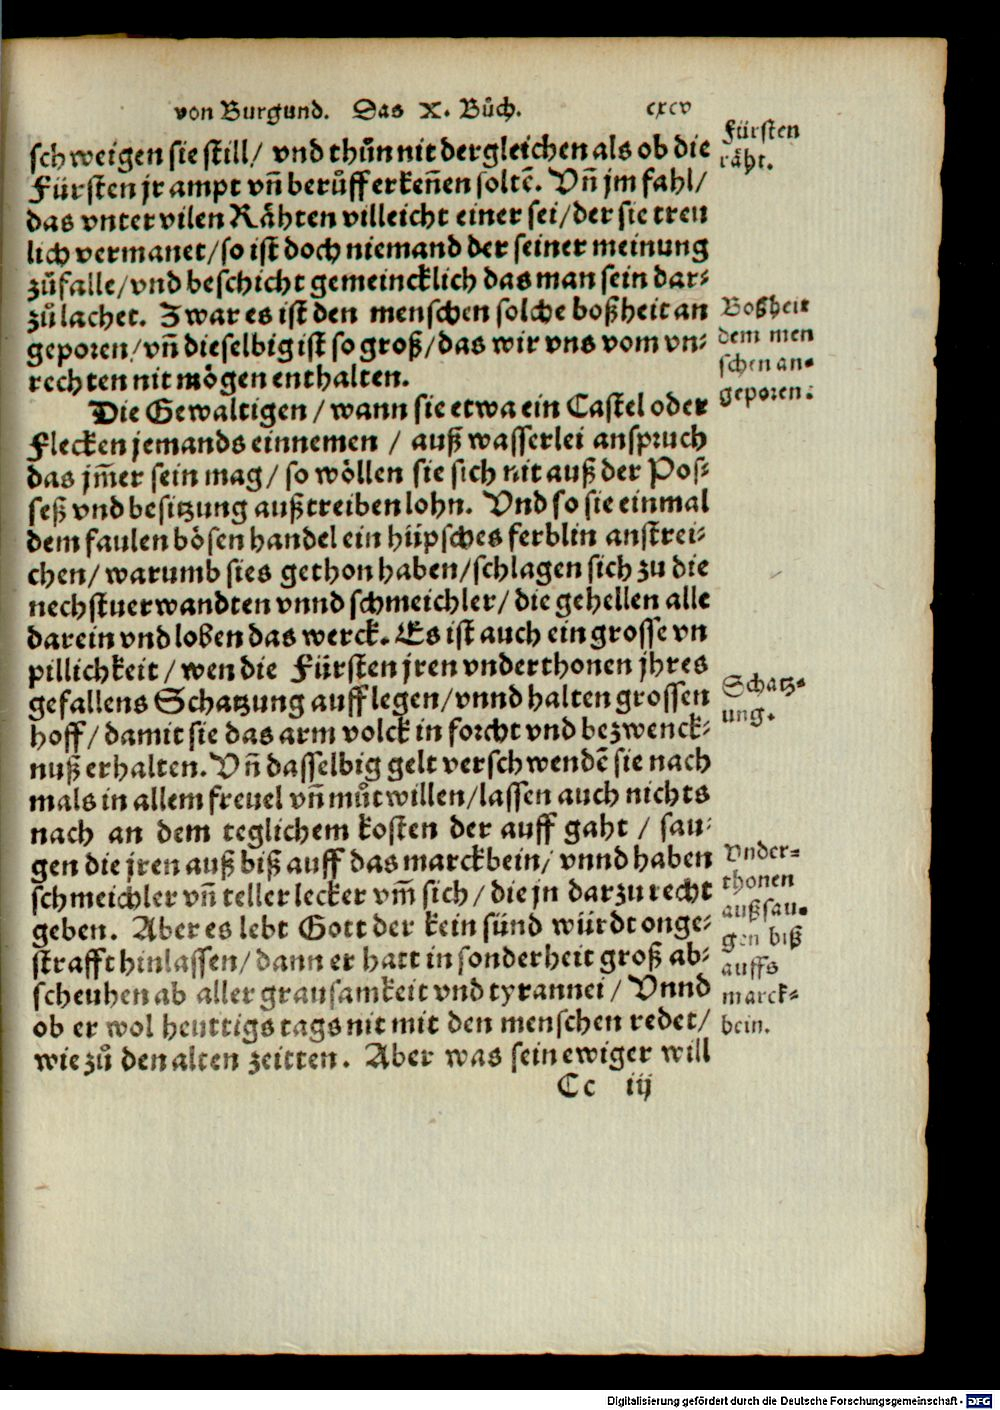 von Burgund. Das X. Bůch. cxcv
schweigen sie still/ vnd thůn nit dergleichen als ob die
Fürsten jr ampt vñ berůff erkeñen soltẽ. Vñ jm fahl/
das vnter vilen Rähten villeicht einer sei/der sie treu
lich vermanet/so ist doch niemand der seiner meinung
zůfalle/vnd beschicht gemeincklich das man sein dar-
zů lachet. Zwar es ist den menschen solche boßheit an
geporen/vñ dieselbig ist so groß/das wir vns vom vn-
rechten nit mögen enthalten.
Die Gewaltigen/wann sie etwa ein Castel oder
Flecken jemands einnemen / auß wasserlei anspruch
das jm̃er sein mag/ so wöllen sie sich nit auß der Pos-
seß vnd besitzung außtreiben lohn. Vnd so sie einmal
dem faulen bösen handel ein hüpsches ferblin anstrei-
chen/ warumb sies gethon haben/schlagen sich zu die
nechstuerwandten vnnd schmeichler/ die gehellen alle
darein vnd loben das werck. Es ist auch ein grosse vn
pillichkeit/wen die Fürsten jren vnderthonen jhres
gefallens Schatzung auff legen/vnnd halten grossen
hoff/damit sie das arm volck in forcht vnd bezwenck-
nuß erhalten. Vñ dasselbig gelt verschwendẽ sie nach
mals in allem freuel vñ můtwillen/lassen auch nichts
nach an dem teglichem kosten der auff gaht / sau-
gen die jren auß biß auff das marckbein/ vnnd haben
schmeichler vñ teller lecker vm̃ sich/ die jn darzu recht
geben. Aber es lebt Gott der kein sünd würdt onge-
strafft hinlassen/dann er hatt in sonderheit groß ab-
scheuhen ab aller grausamkeit vnd tyrannei/ Vnnd
ob er wol heuttigs tags nit mit den menschen redet/
wie zů den alten zeitten. Aber was sein ewiger will
Cc iij
Fürsten
räht.
Boßheit
dem men
schen an-
geporen.
Schatz-
ung.
Vnder-
thonen
außsau-
gen biß
auffs
marck-
bein.
Digitalisierung gefördert durch die Deutsche Forschungsgemeinschaft - DFG